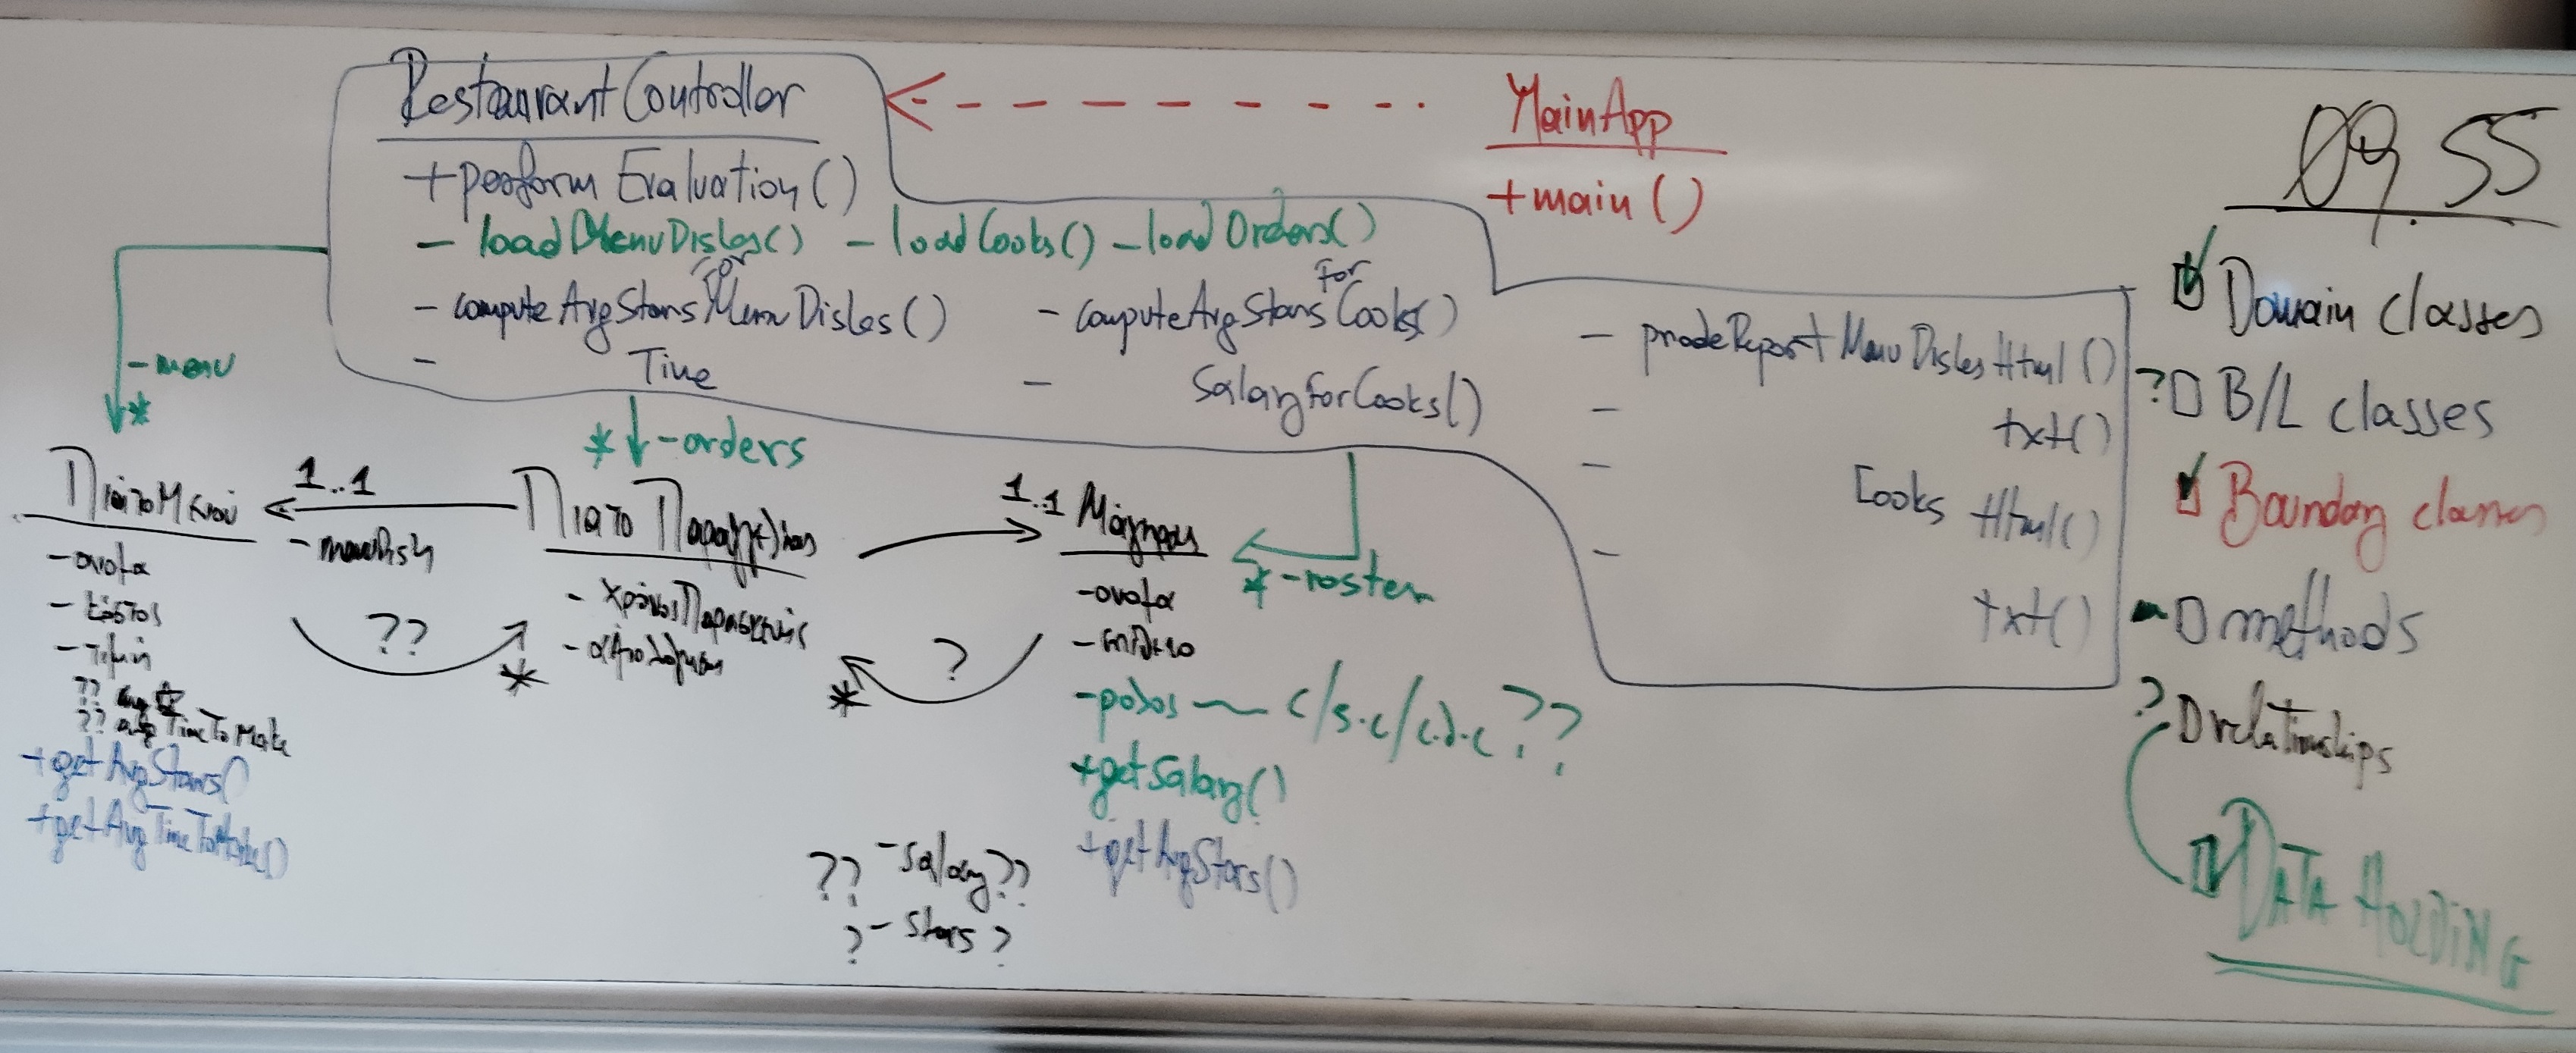 RestaurantController
+performEvaluation()
- loadMenuDishes() - loadCooks() - loadOrders()
- computeAvgStars for MenuDishes() - computeAvgStars for Cooks()
- Time - SalaryForCooks()
- prodeReportMenuDishesHtml()
- txt()
- Cooks Html()
- txt()
MainApp
+main()
09.55
Domain classes
? B/L classes
Boundary classes
methods
? relationships
DATA HOLDING
-menu
*
* -orders
* -roster
ΠιάτοΜενού
-όνομα
-κόστος
-τιμή
?? avg
?? avgTimeToMake
+getAvgStars()
+getAvgTimeToMake()
1..1
-menuDish
??
*
ΠιάτοΠαραγγελίας
-χρόνοςΠαρασκευής
-αξιολόγηση
1..1
?
*
Μάγειρας
-όνομα
-επίθετο
-ρόλος — c/s.c/c.d.c ??
+getSalary()
+getAvgStars()
?? -salary ??
? -stars ?